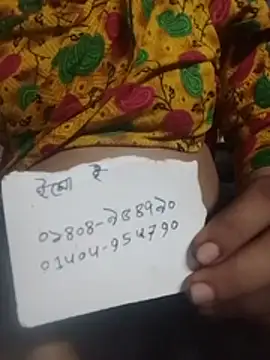 ইমো ই
০১৪০৪-৯৫৪৭৯০
01404-954790